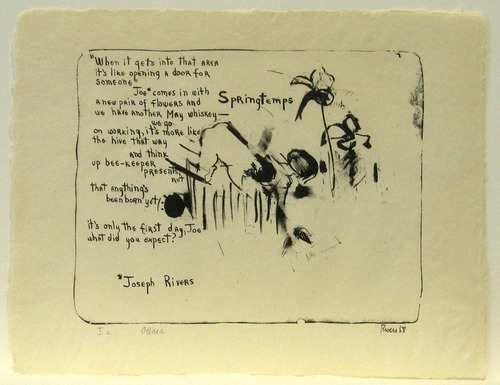 "When it gets into that area
it's like opening a door for
someone"
Joe* comes in with
a new pair of flowers and
we have another May whiskey—
Springtemps
we go
on working, it's more like
the hive that way
and think
up bee-keeper
presents,
not
that anything's
been born yet!
it's only the first day, Joe
what did you expect?
*Joseph Rivers
O'Hara
Rivers